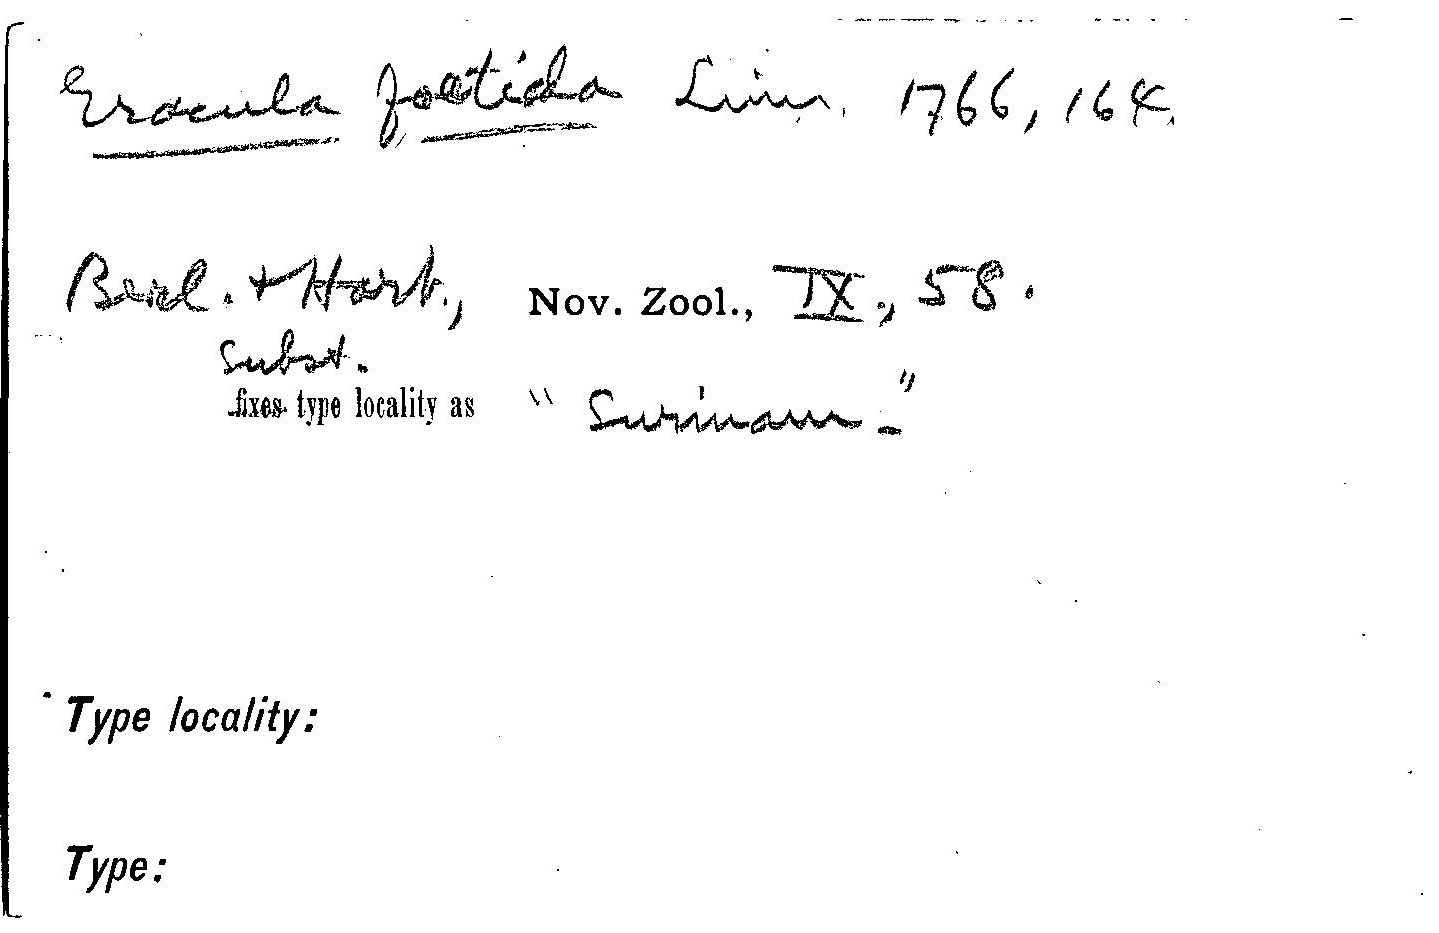 Gracula foetida Linn. 1766, 164.
Berl. + Hart., Nov. Zool., IX., 58.
subst.
fixes type locality as "Surinam-"
Type locality:
Type: